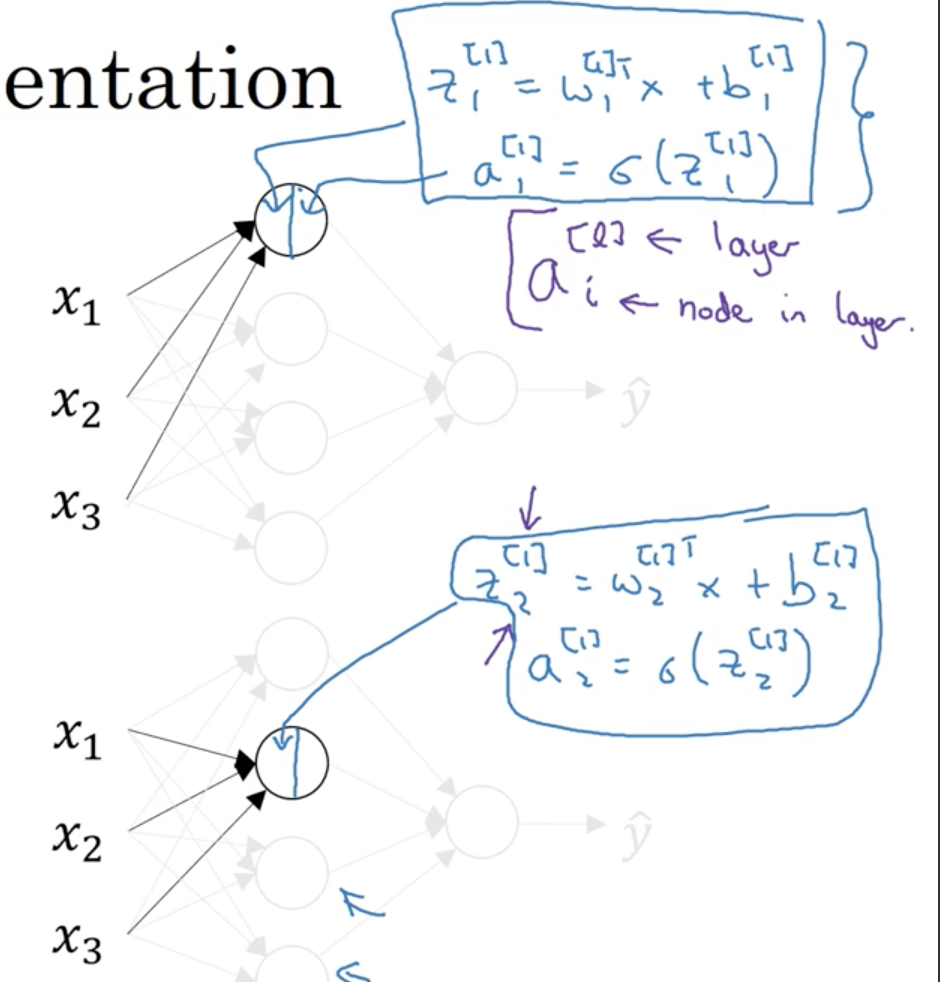 entation
z₁^[1] = w₁^[1]T x + b₁^[1]
a₁^[1] = σ(z₁^[1])
a_i^[l] ← layer
← node in layer.
x₁
x₂
x₃
ŷ
z₂^[1] = w₂^[1]T x + b₂^[1]
a₂^[1] = σ(z₂^[1])
x₁
x₂
x₃
ŷ